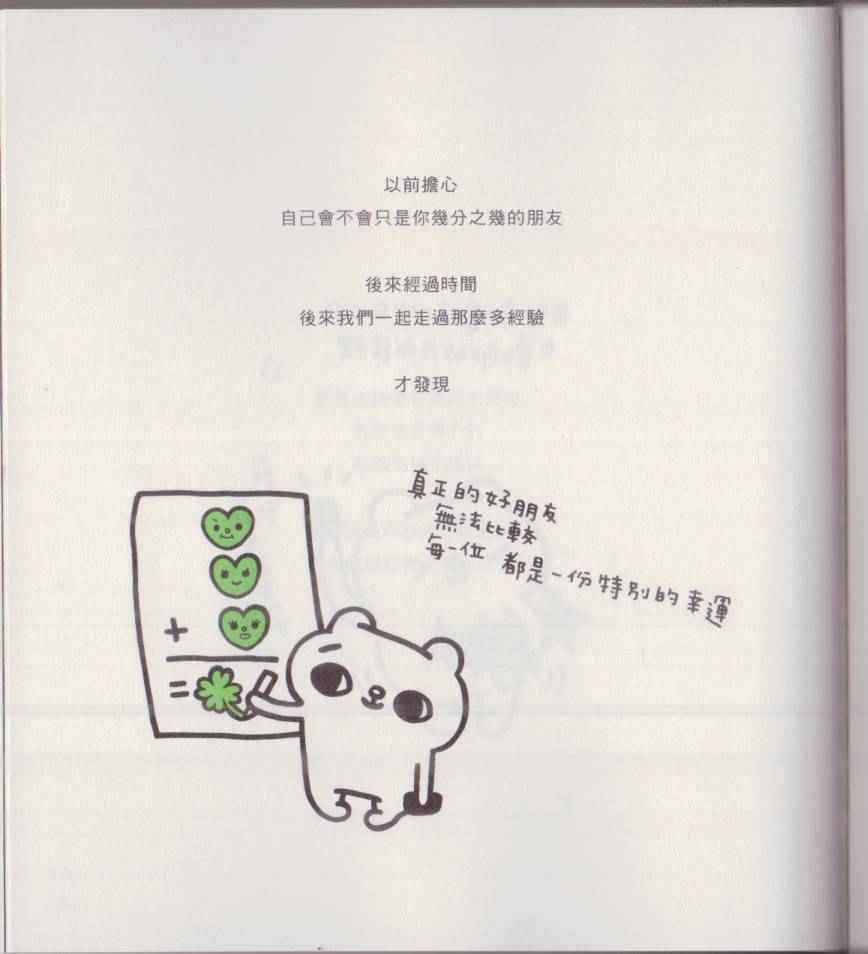 以前擔心
自己會不會只是你幾分之幾的朋友
後來經過時間
後來我們一起走過那麼多經驗
才發現
真正的好朋友
無法比較
每一位 都是一份特別的幸運
+
=